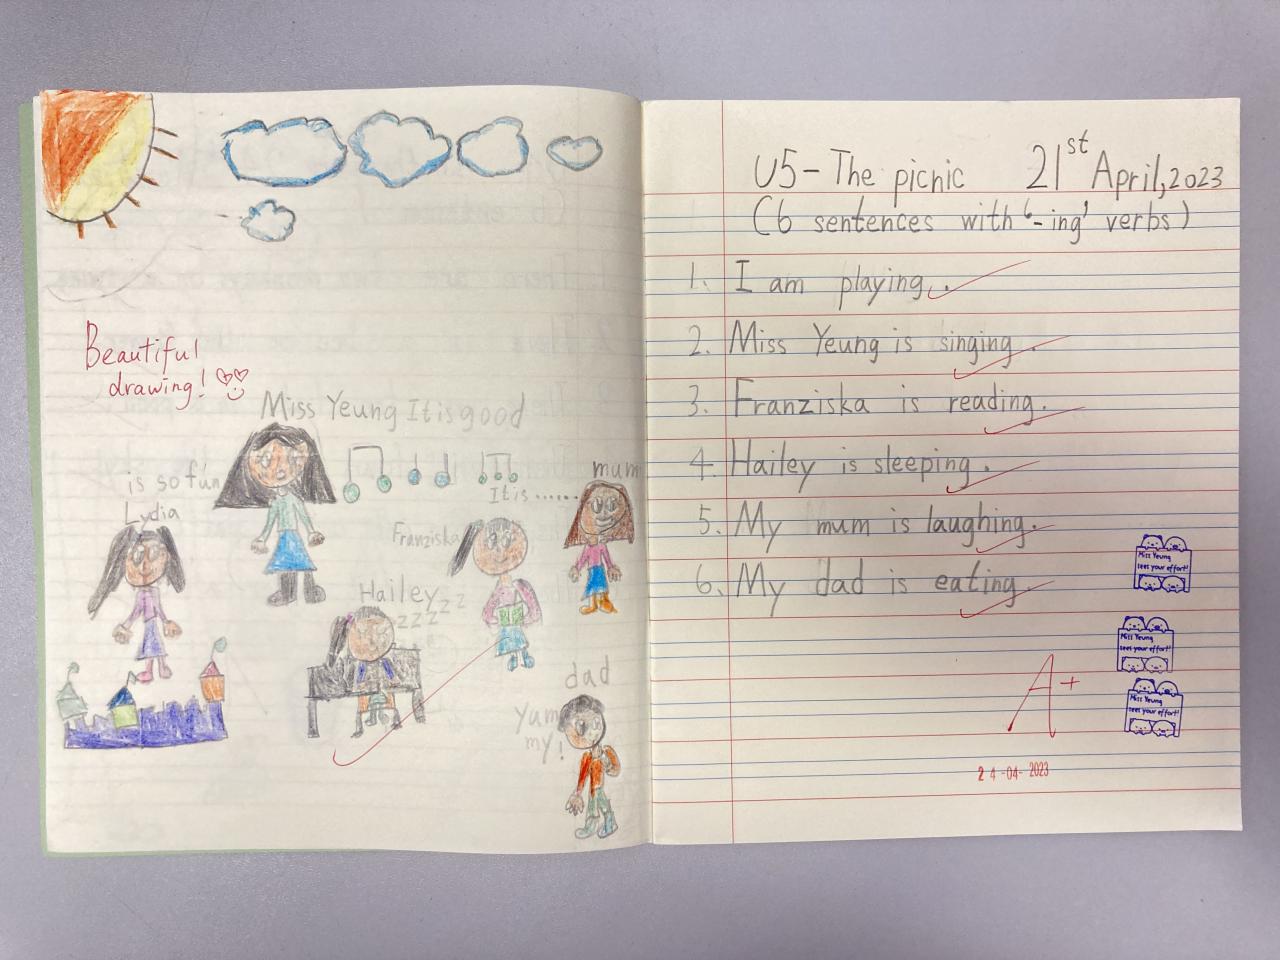 Beautiful
drawing!
Miss Yeung It is good
is so fun
Lydia
mum
It is ......
Franziska
Hailey zzz
zzzz
dad
Yum
my!
U5 - The picnic 21st April, 2023
(6 sentences with '-ing' verbs)
1. I am playing.
2. Miss Yeung is singing.
3. Franziska is reading.
4. Hailey is sleeping.
5. My mum is laughing.
6. My dad is eating.
Miss Yeung
sees your effort!
Miss Yeung
sees your effort!
Miss Yeung
sees your effort!
A+
24-04-2023